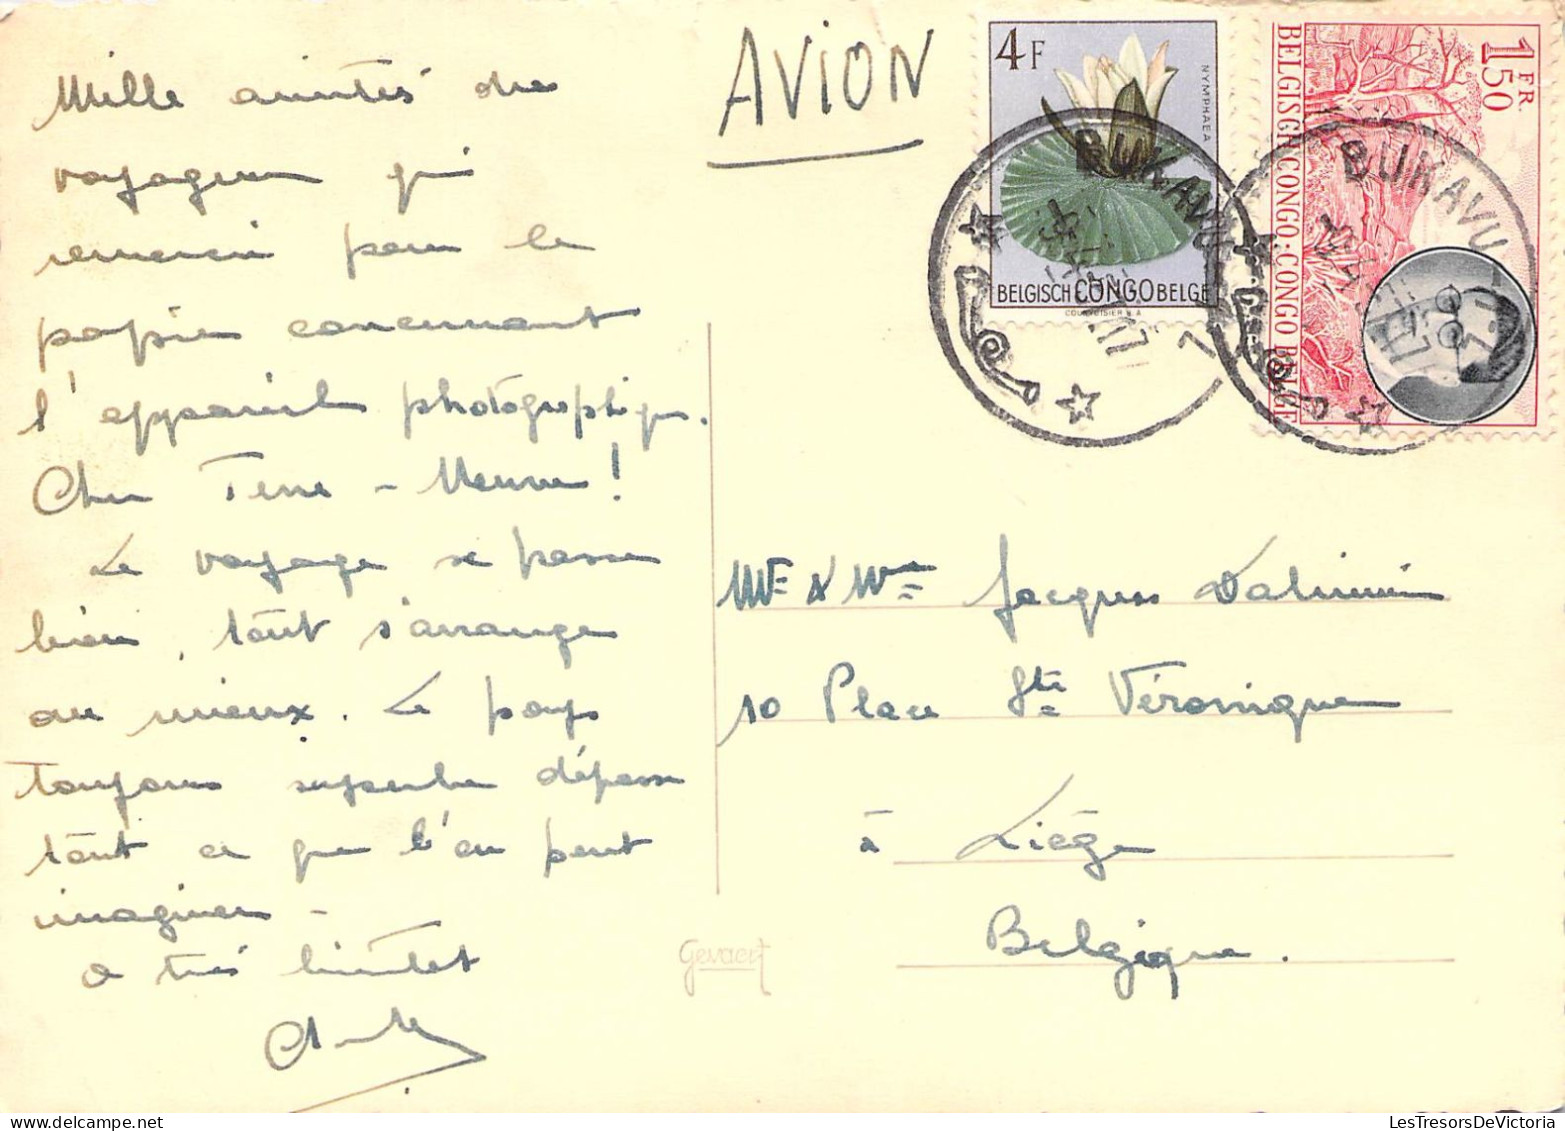 AVION
4F
NYMPHAEA
BELGISCH CONGO BELGE
COURVOISIER S.A
1 FR.
50
BELGISCH CONGO·CONGO BELGE
BUKAVU
BUKAVU
Mille amitiés du
voyageur qui
remercie pour le
papier concernant
l'appareil photographique.
Cher Terre-Meuve!
Le voyage se passe
bien, tout s'arrange
au mieux. Le pays
toujours superbe dépasse
tout ce que l'on peut
imaginer -
a très bientôt
Mr & Mme Jacques
10 Place Ste Véronique
à Liège
Belgique.
Gevaert
LesTresorsDeVictoria